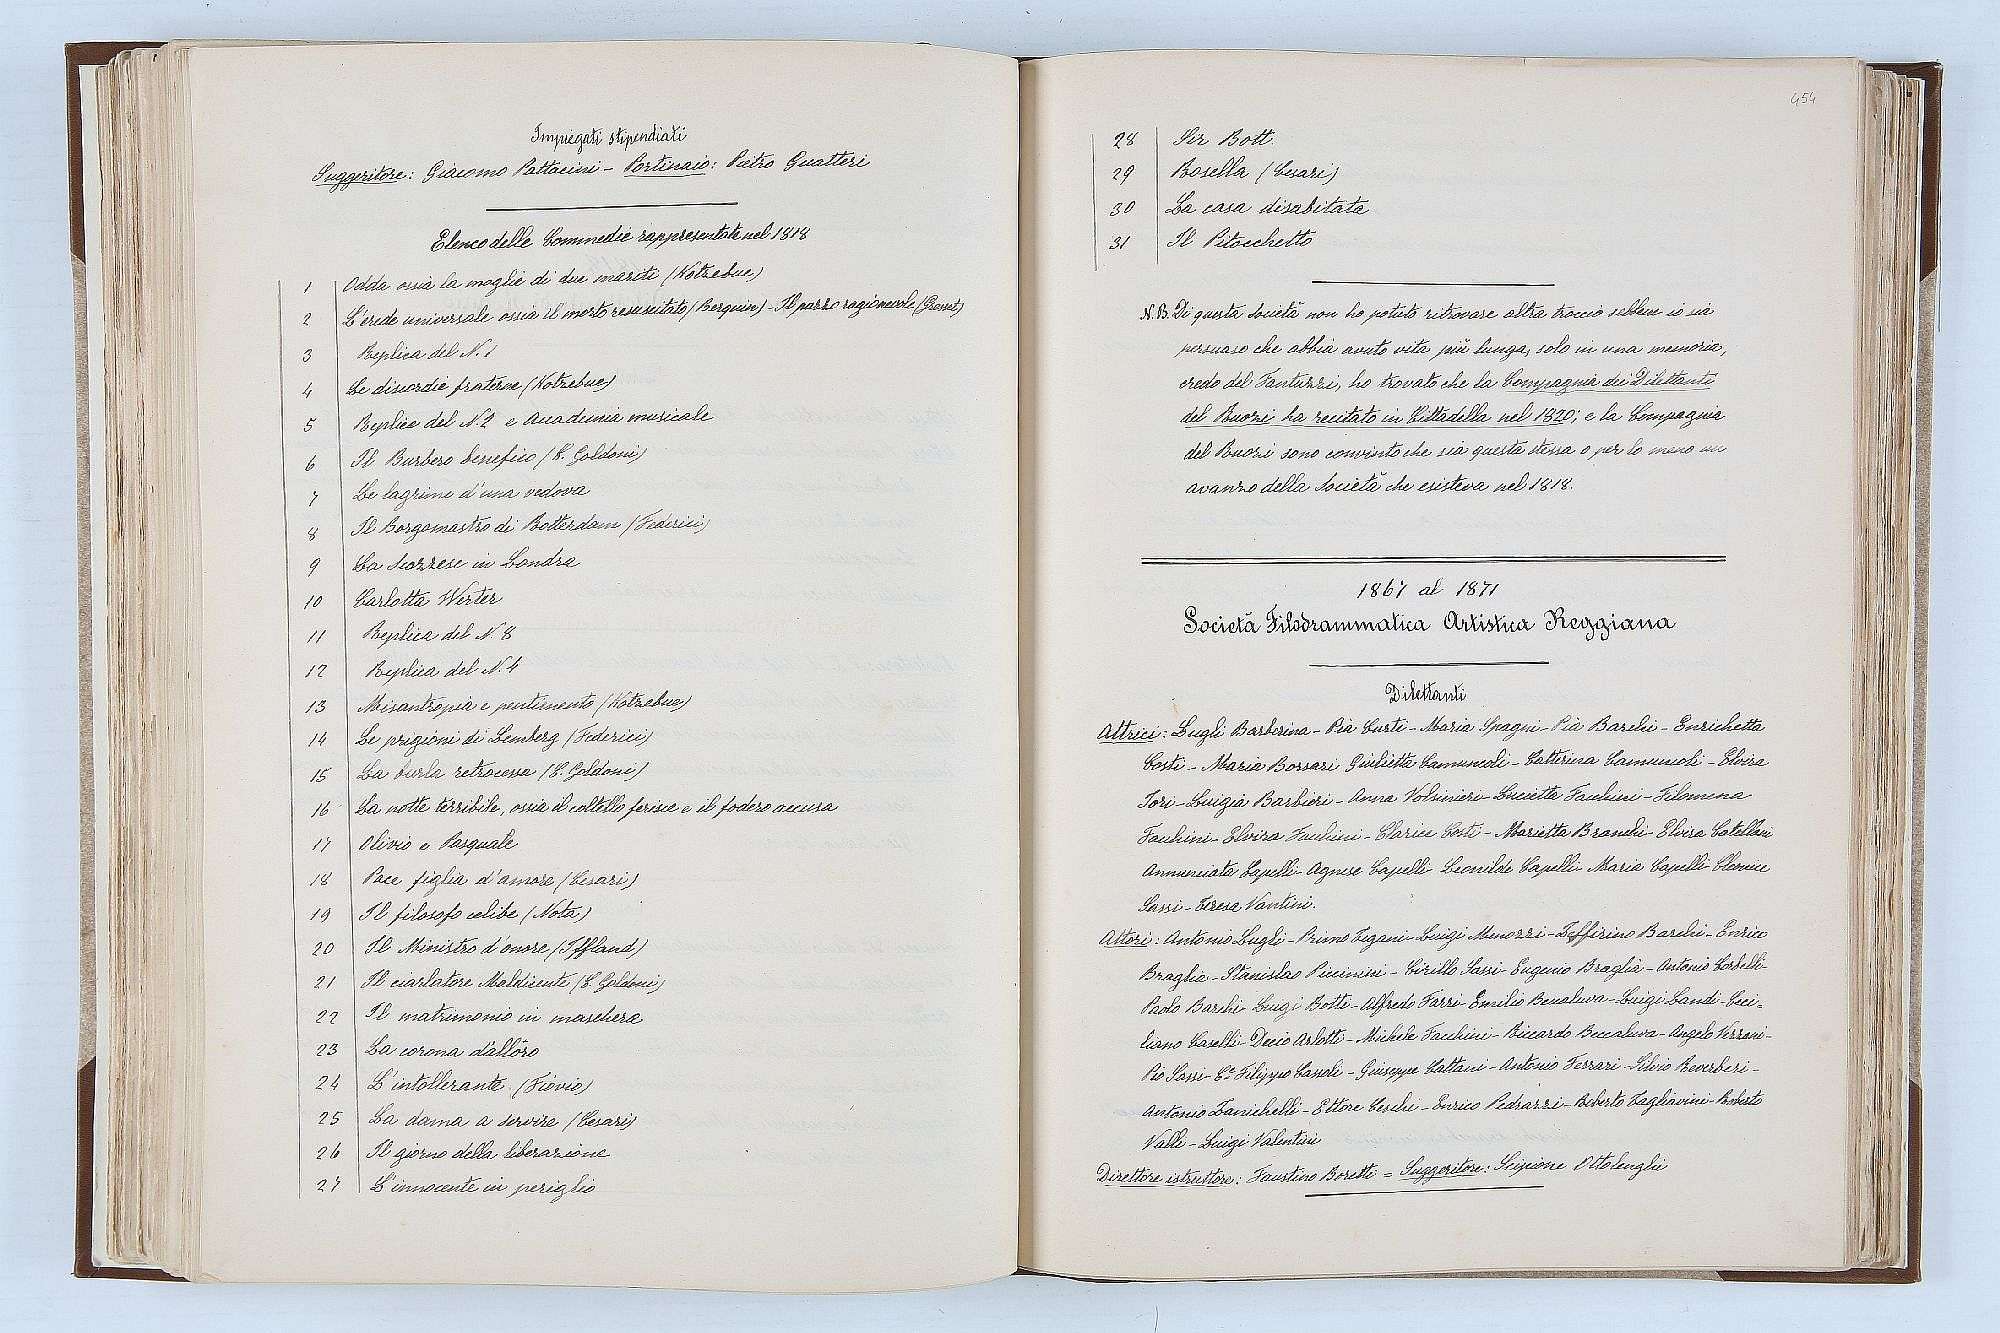 Impiegati stipendiati
Suggeritore: Giacomo Pattacini - Portinaio: Pietro Guatteri
Elenco delle Commedie rappresentate nel 1818
1 Odda ossia la moglie di due mariti (Kotzebue)
2 L'erede universale ossia il morto resuscitato (Berquin) - Il pazzo ragionevole
3 Replica del N. 1
4 Le discordie fraterne (Kotzebue)
5 Replica del N. 2 e Accademia musicale
6 Il Burbero benefico (C. Goldoni)
7 Le lagrime d'una vedova
8 Il Borgomastro di Rotterdam (Federici)
9 La Scozzese in Londra
10 Carlotta Werter
11 Replica del N. 8
12 Replica del N. 4
13 Misantropia e pentimento (Kotzebue)
14 Le prigioni di Lemberg (Federici)
15 La burla retrocessa (C. Goldoni)
16 La notte terribile, ossia il coltello ferisce e il fodero accusa
17 Olivio e Pasquale
18 Pace figlia d'amore (Cesari)
19 Il filosofo celibe (Nota)
20 Il Ministro d'onore (Iffland)
21 Il ciarlatore Maldicente (C. Goldoni)
22 Il matrimonio in maschera
23 La corona d'alloro
24 L'intollerante (Fiovio)
25 La dama a servire (Cesari)
26 Il giorno della liberazione
27 L'innocente in periglio
454
28 Sir Bott.
29 Rosella (Cesari)
30 La casa disabitata
31 Il Pitocchetto
N.B. Di questa Società non ho potuto ritrovare altra traccia sebbene io sia
persuaso che abbia avuto vita più lunga, solo in una memoria,
credo del Fantuzzi, ho trovato che la Compagnia dei Dilettanti
del Ruozi ha recitato in Cittadella nel 1820; e la Compagnia
del Ruozi sono convinto che sia questa stessa o per lo meno un
avanzo della Società che esisteva nel 1818.
1867 al 1871
Società Filodrammatica Artistica Reggiana
Dilettanti
Attrici: Lugli Barberina - Pia Curti - Maria Spagni - Pia Barchi - Enrichetta
Costi - Maria Borsari Giulietta Camuncoli - Catterina Camuncoli - Elvira
Tori - Luigia Barbieri - Anna Volsinieri - Lucietta Fachini - Filomena
Fachini - Elvira Fachini - Clarice Costi - Marietta Branchi - Elvira Catellani
Annunciata Capelli - Agnese Capelli - Leonilde Capelli - Maria Capelli
Sassi - Teresa Vantini.
Attori: Antonio Lugli - Primo Tegani - Luigi Menozzi - Zefferino Barchi - Enrico
Braglia - Stanislao Piccinini - Cirillo Sassi - Eugenio Braglia - Antonio Corbelli -
Paolo Barchi - Luigi Botti - Alfredo Farri - Emilio Beccaluva - Luigi Landi - Feci-
liano Caselli - Decio Arlotti - Michele Fachini - Riccardo Beccaluva - Angelo Verzani -
Pio Sassi - Filippo Cassoli - Guiseppe Cattani - Antonio Ferrari - Silvio Reverberi -
Antonio Zanichelli - Ettore Ceschi - Enrico Pedrazzi - Roberto Tagliavini - Roberto
Valli - Luigi Valentini
Direttore istruttore: Faustino Boretti = Suggeritore: Scipione Ottolenghi